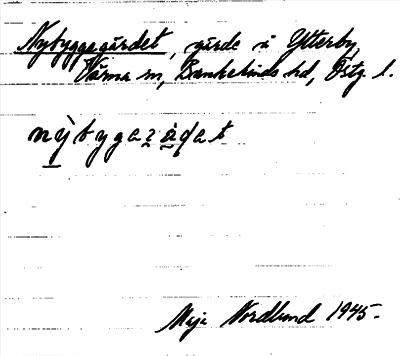 Nybyggegärdet, gärde i Ytterby,
Värna sn, Bankekinds hd, Östg. l.
nỳbygazàɖat
Maja Nordlund 1945.